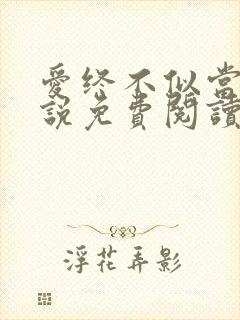 愛終不似當
說免費閱讀
浮花弄影